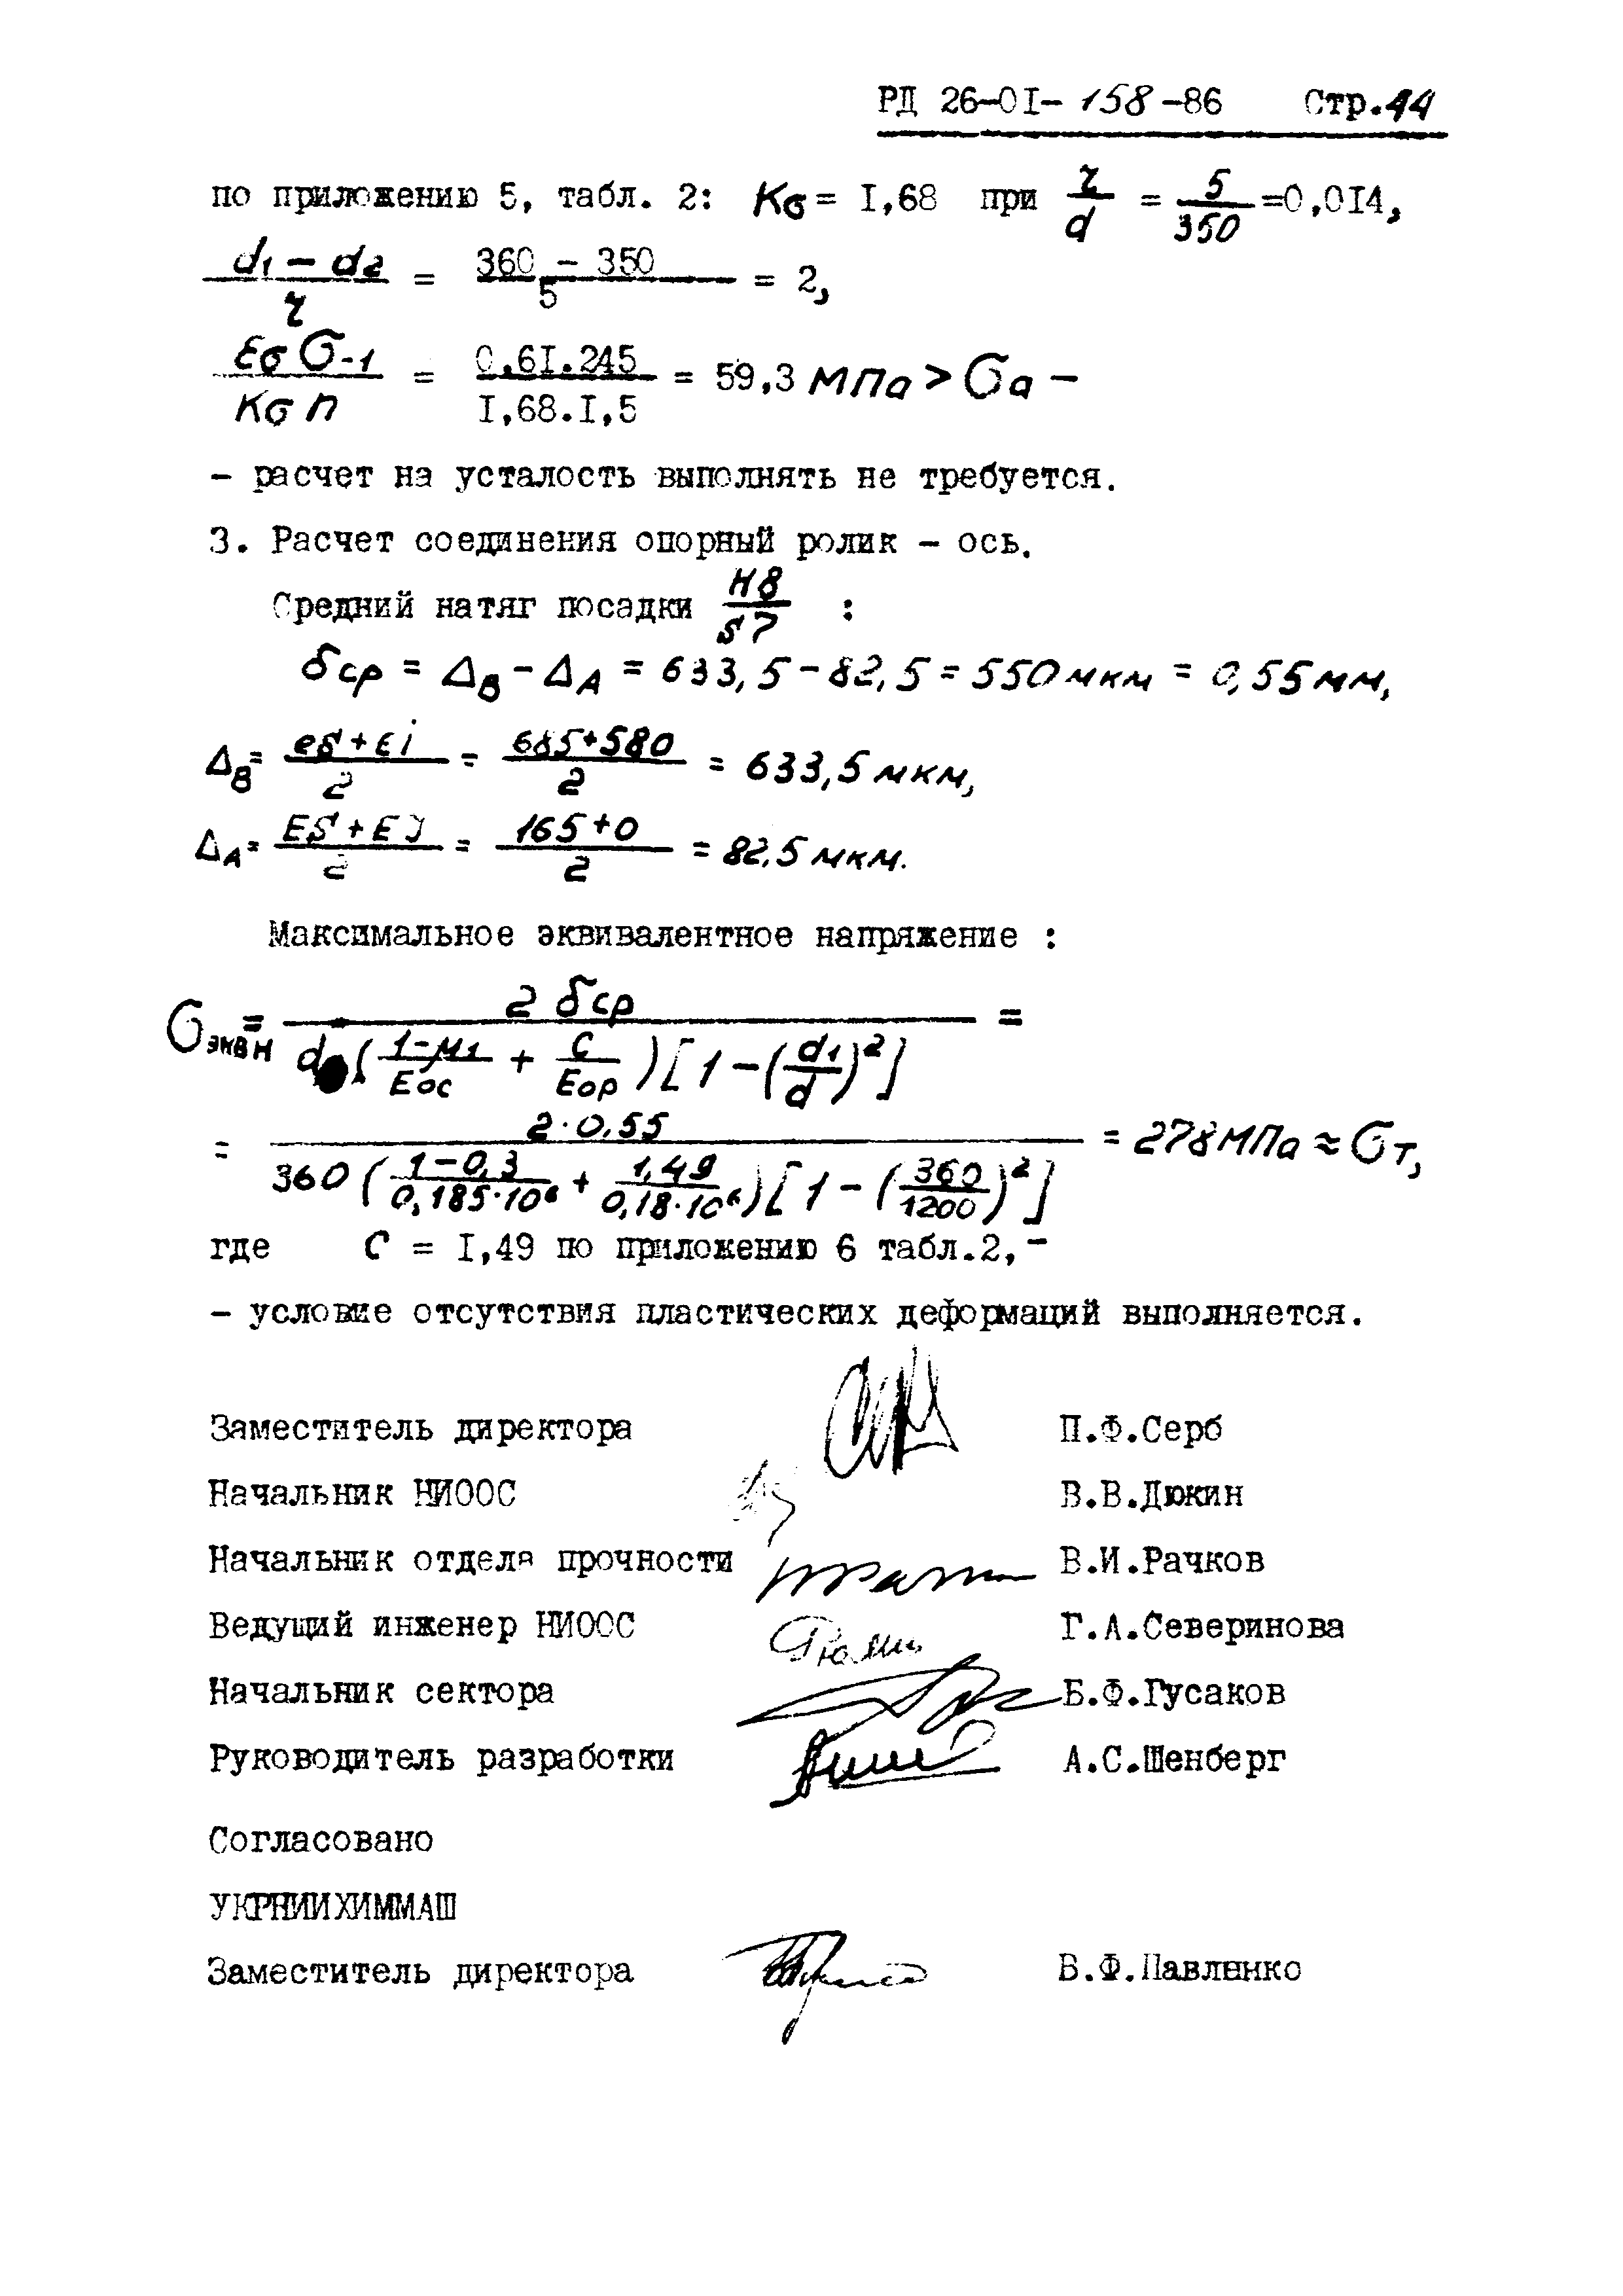 РД 26-01-158-86 Стр.44
по приложению 5, табл. 2: Kσ = 1,68 при r/d = 5/350 = 0,014,
(d1 - d2)/r = (360 - 350)/5 = 2,
(Eσ σ-1)/(Kσ n) = (0,61.245)/(1,68.1,5) = 59,3 МПа > σa -
- расчет на усталость выполнять не требуется.
3. Расчет соединения опорный ролик - ось.
Средний натяг посадки H8/s7 :
δср = ΔB - ΔA = 633,5 - 82,5 = 550 мкм = 0,55 мм,
ΔB = (es + Ei)/2 = (685+580)/2 = 633,5 мкм,
ΔA = (ES + EJ)/2 = (165+0)/2 = 82,5 мкм.
Максимальное эквивалентное напряжение :
σэквн = 2 δср / d ( (1-μ1)/Eос + C/Eор ) [1 - (d1/d)²] =
= 2·0,55 / 360 ( (1-0,3)/(0,185·10⁶) + 1,49/(0,18·10⁶) ) [1 - (360/1200)²] = 278 МПа ≈ σт,
где C = 1,49 по приложению 6 табл.2, -
- условие отсутствия пластических деформаций выполняется.
Заместитель директора П.Ф.Серб
Начальник НИООС В.В.Дюкин
Начальник отдела прочности В.И.Рачков
Ведущий инженер НИООС Г.А.Северинова
Начальник сектора Б.Ф.Гусаков
Руководитель разработки А.С.Шенберг
Согласовано
УКРНИИХИММАШ
Заместитель директора В.Ф.Павленко